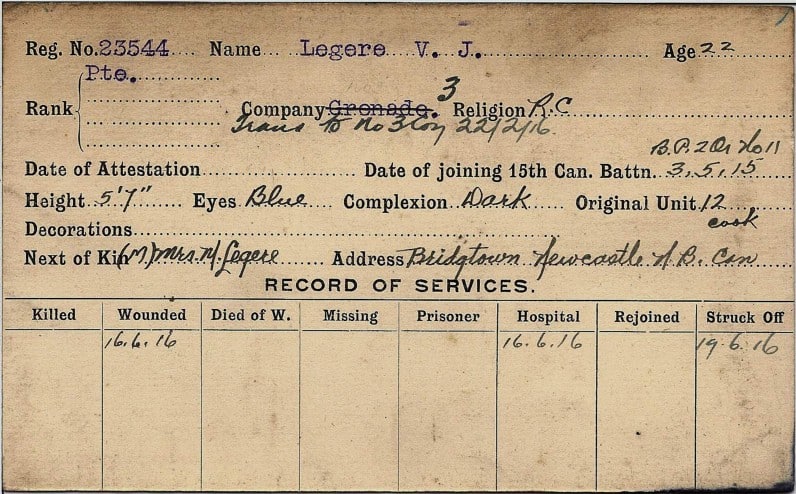 Reg. No. 23544 Name Legere V. J. Age 22
Pte.
Rank Company Grenade. 3 Religion R.C
Trans to No 3 Coy 22/2/16.
B.P. 2 Or No 11
Date of Attestation Date of joining 15th Can. Battn. 3.5.15
Height 5'7" Eyes Blue Complexion Dark Original Unit 12
cook
Decorations
Next of Kin (M) Mrs. M. Legere Address Bridgtown Newcastle N.B. Can
RECORD OF SERVICES.
Killed Wounded Died of W. Missing Prisoner Hospital Rejoined Struck Off
16.6.16 16.6.16 19.6.16